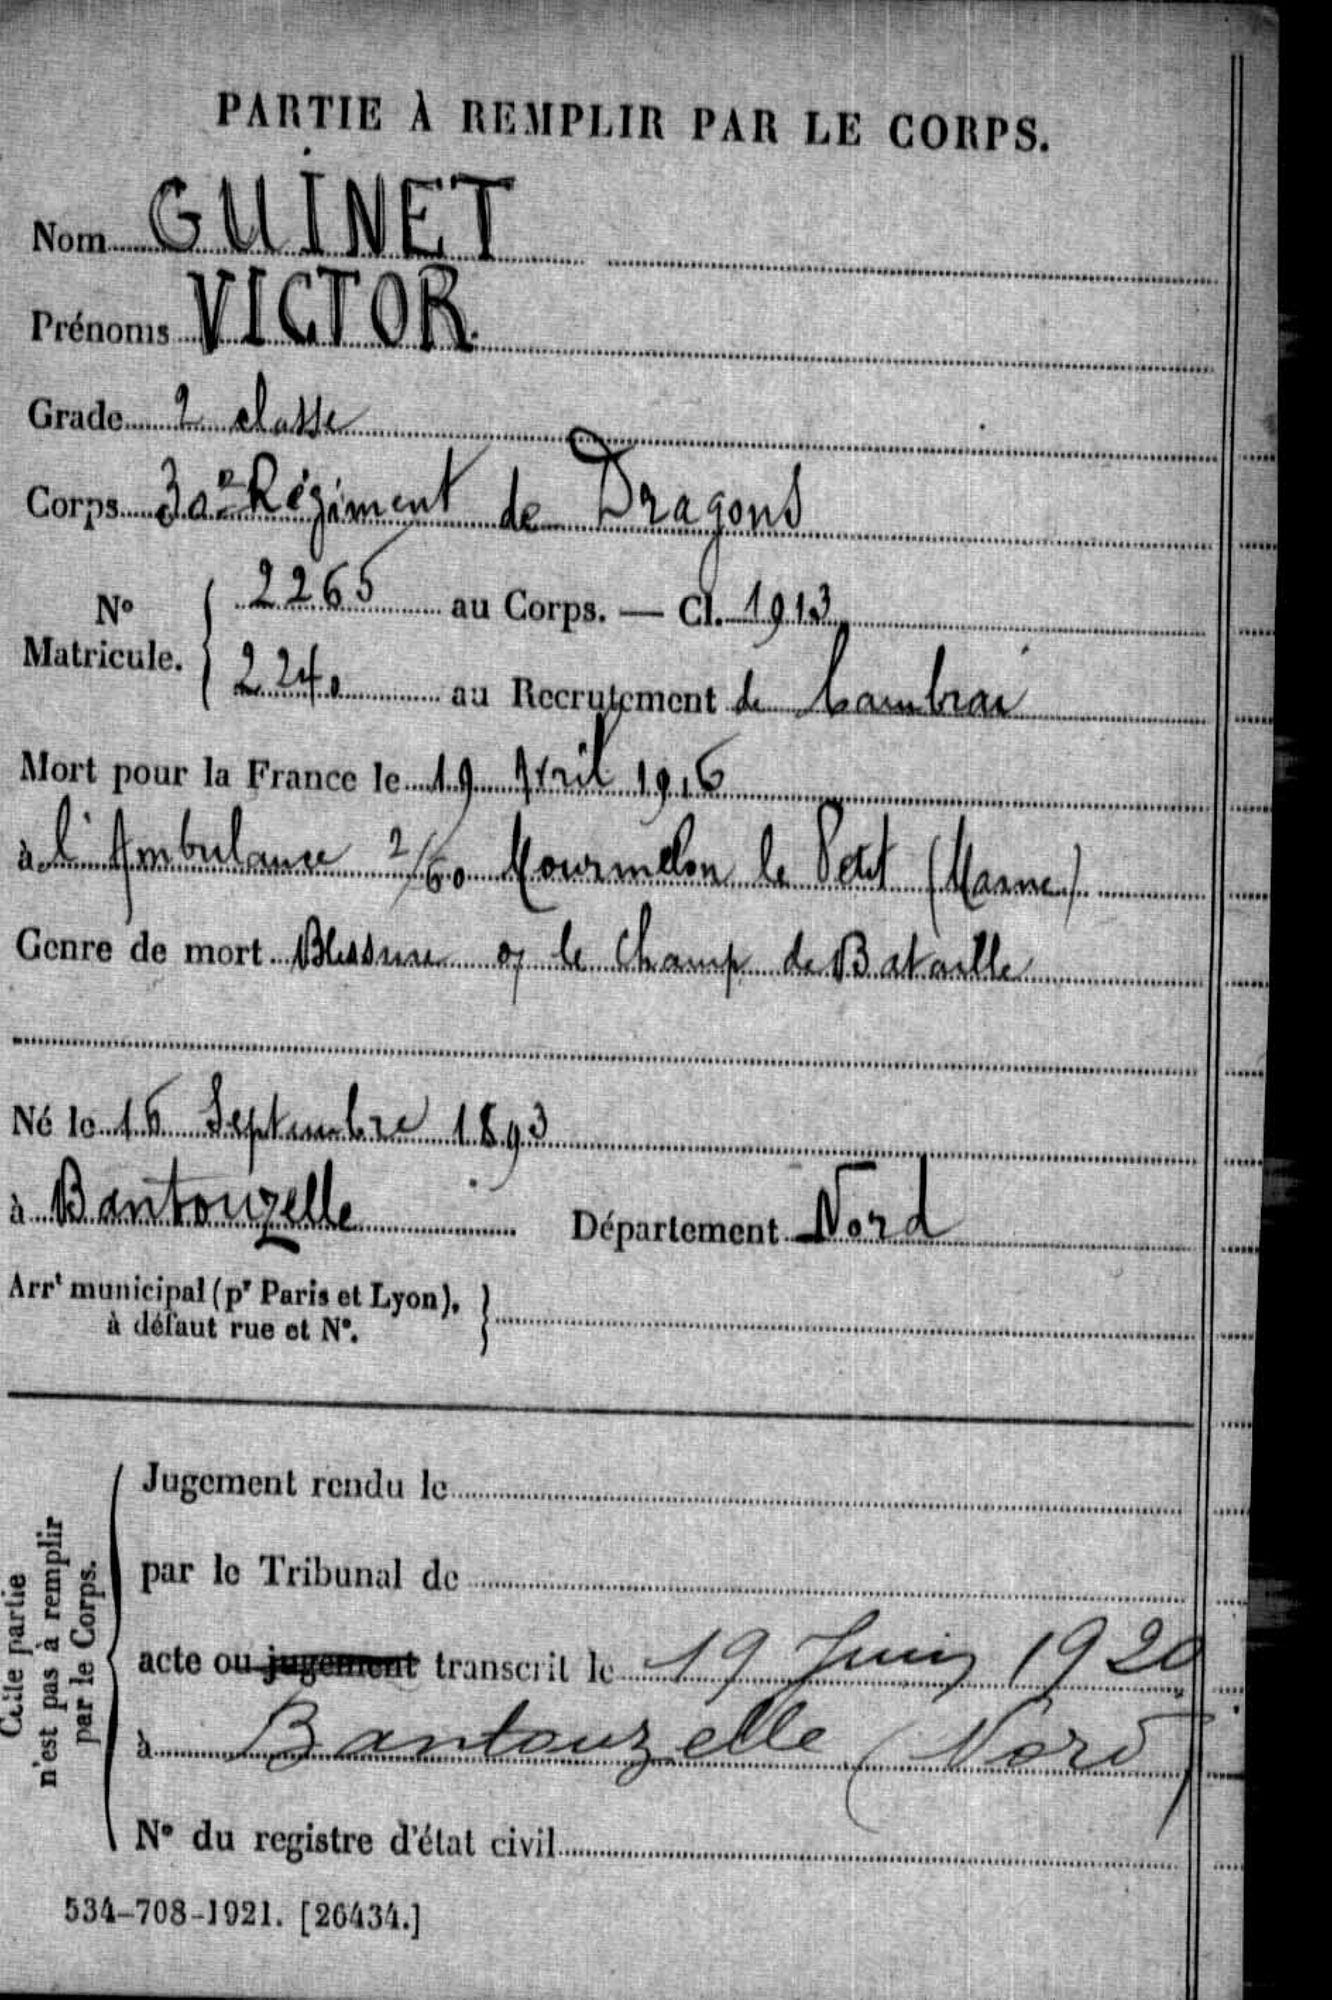 PARTIE À REMPLIR PAR LE CORPS.
Nom GUINET
Prénoms VICTOR.
Grade 2 classe
Corps 30e Régiment de Dragons
N° Matricule. { 2265 au Corps. — Cl. 1913
2240 au Recrutement de Cambrai
Mort pour la France le 19 Avril 1916
à l'Ambulance 2/60 Mourmelon le Petit (Marne)
Genre de mort Blessure le Champ de Bataille
Né le 16 Septembre 1893
à Bantouzelle Département Nord
Arrt municipal (pr Paris et Lyon), }
à défaut rue et N°.
Cette partie
n'est pas à remplir
par le Corps.
Jugement rendu le
par le Tribunal de
acte ou jugement transcrit le 19 Juin 1920
à Bantouzelle (Nord)
N° du registre d'état civil
534-708-1921. [26434.]